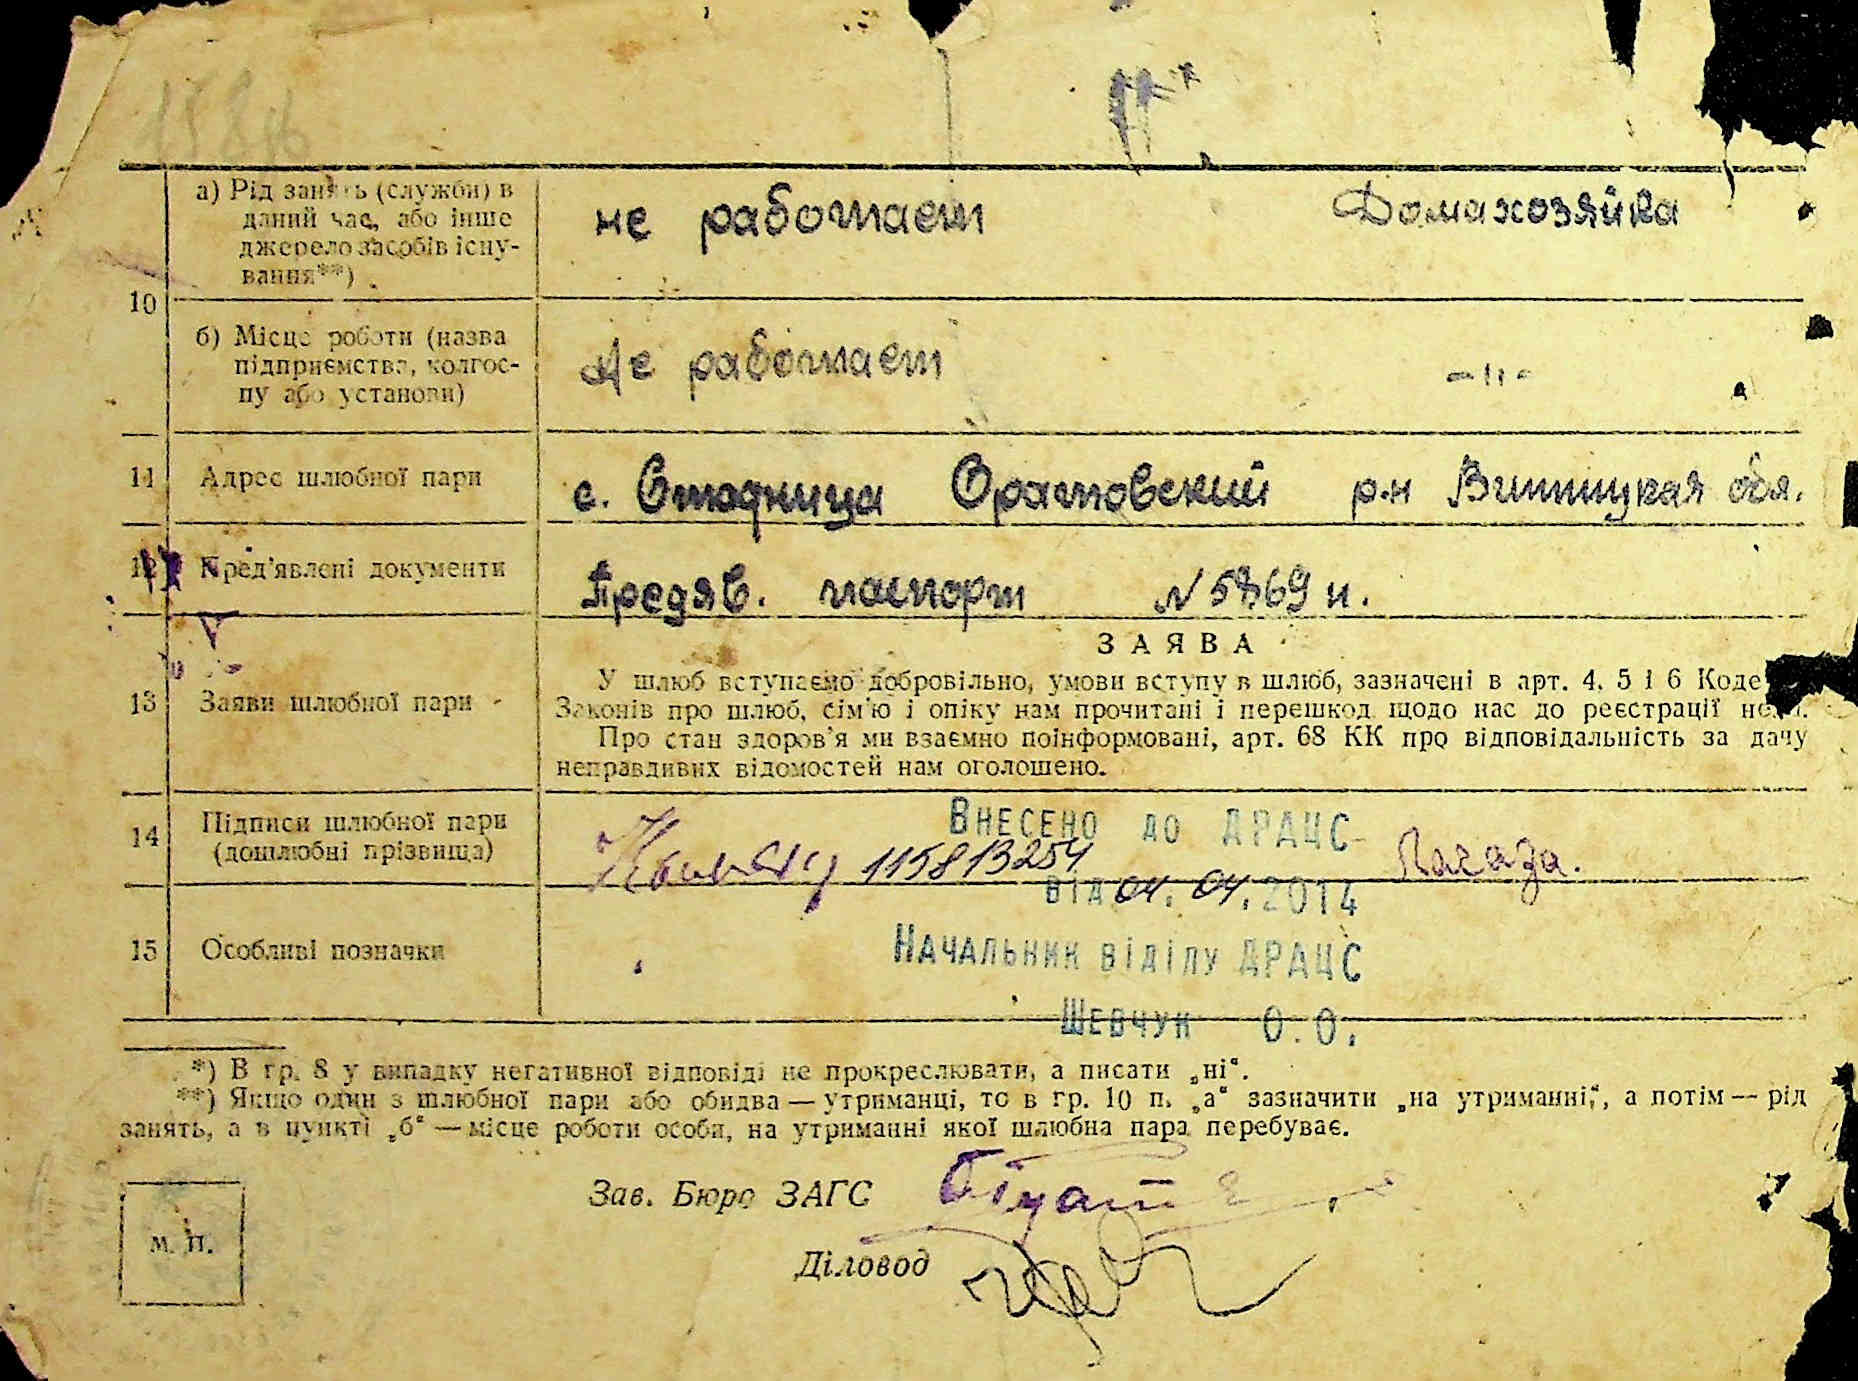 10
а) Рід занять (служби) в
даний час, або інше
джерело засобів існу-
вання**)
не работает Домахозяйка
б) Місце роботи (назва
підприємства, колгос-
пу або установи)
Не работает -„-
11 Адрес шлюбної пари с. Стадница Оратовский р-н Винницкая обл.
12 Пред'явлені документи Предяв. паспорт №5869 н.
13 Заяви шлюбної пари
ЗАЯВА
У шлюб вступаємо добровільно, умови вступу в шлюб, зазначені в арт. 4, 5 і 6 Коде
Законів про шлюб, сім'ю і опіку нам прочитані і перешкод щодо нас до реєстрації
Про стан здоров'я ми взаємно поінформовані, арт. 68 КК про відповідальність за дачу
неправдивих відомостей нам оголошено.
14 Підписи шлюбної пари
(дошлюбні прізвища)
Внесено до ДРАЦС
115813254
від 04.04.2014
15 Особливі позначки
Начальник відділу ДРАЦС
Шевчук О.О.
*) В гр. 8 у випадку негативної відповіді не прокреслювати, а писати „ні“.
**) Якщо один з шлюбної пари або обидва — утриманці, то в гр. 10 п. „а“ зазначити „на утриманні“, а потім — рід
занять, а в пункті „б“ — місце роботи особи, на утриманні якої шлюбна пара перебуває.
Зав. Бюро ЗАГС
Діловод
М. П.